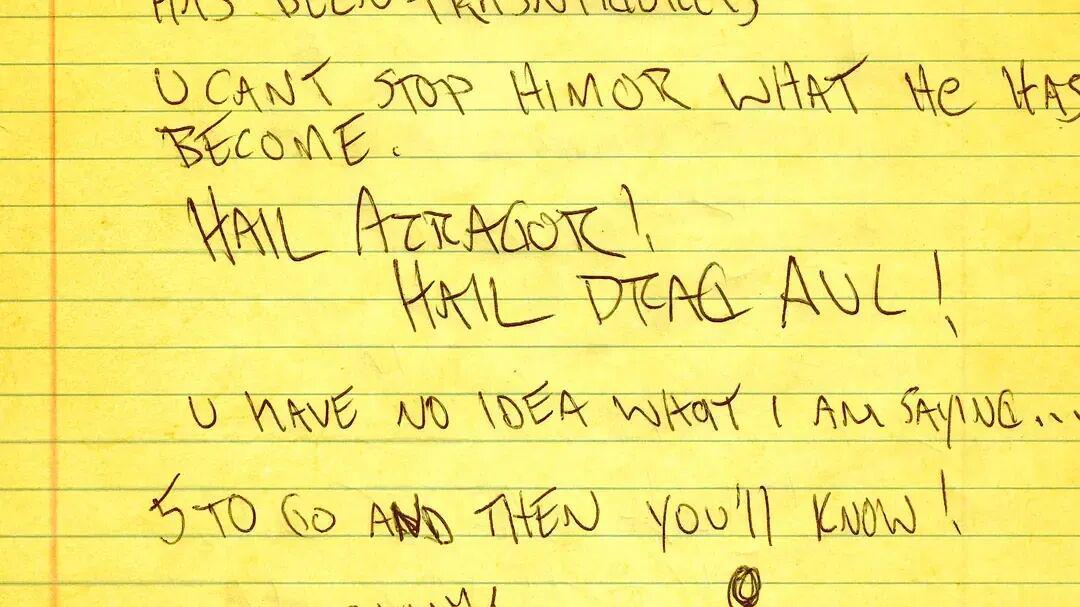 HAS BEEN
U CANT STOP HIM OR WHAT HE HAS
BECOME.
HAIL ATRAGOR!
HAIL DRAG AUL!
U HAVE NO IDEA WHAT I AM SAYING...
5 TO GO AND THEN YOU'll KNOW!